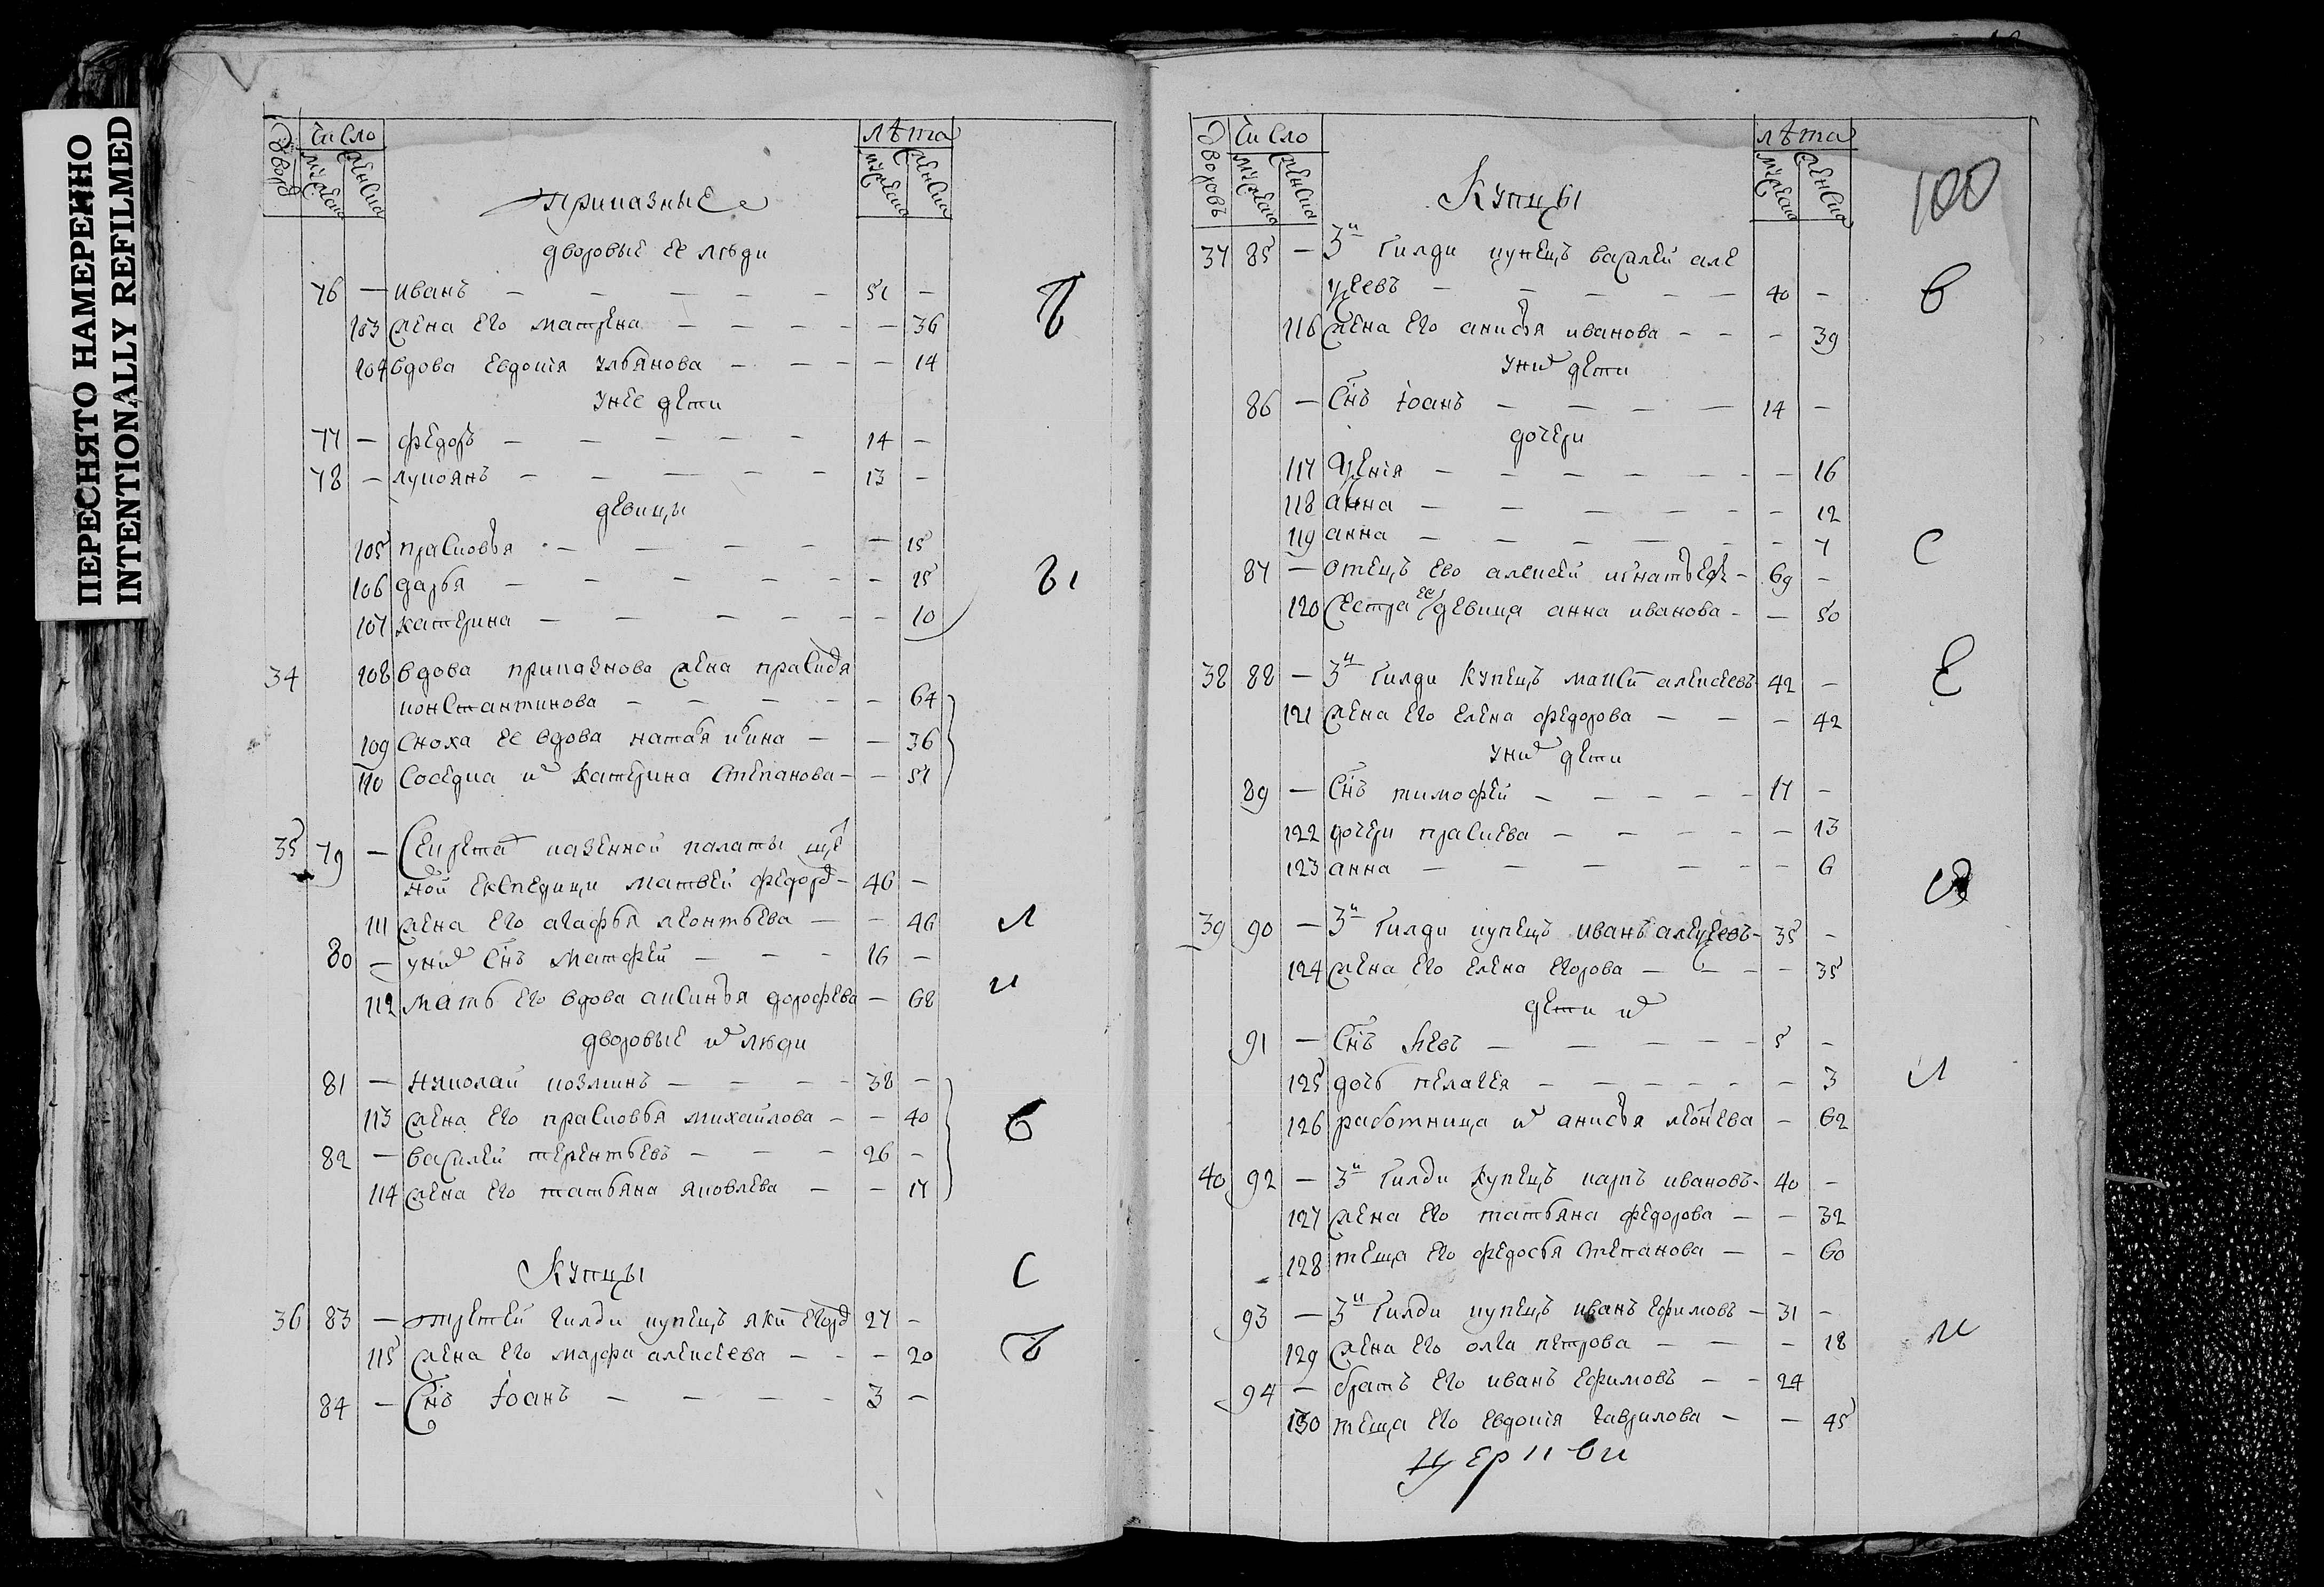 ПЕРЕСНЯТО НАМЕРЕННО
INTENTIONALLY REFILMED
число лѣта
дворовъ мужеска женска мужеска женска
приказные
дворовые ее люди
76 — иванъ — 51 —
103 жена его матрена — 36
104 вдова евдокія ульянова — 14
у нее дети
77 — федоръ — 14 —
78 — лукоянъ — 13 —
девицы
105 прасковья — 15
106 дарья — 25
107 катерина — 10
34 108 вдова приказнова жена праскдя
константинова — 64
109 сноха ее вдова — 36
110 соседка их катерина степанова — 51
35 79 — секрета казенной палаты щё
ной експедици матвей федоров — 46 —
111 жена его агафья леонтьева — 46
80 — у них снъ матфей — 16 —
112 мать его вдова аксинья дорофева — 68
дворовые их люди
81 — николай козминъ — 38 —
113 жена его прасковья михайлова — 40
82 — василей терентьевъ — 26 —
114 жена его татьяна яковлева — 17
Купцы
36 83 — третей гилди купецъ яки егоров 27 —
115 жена его марфа алексеева — 20
84 — Снъ іоанъ — 3 —
Ъ
Ы
Л
и
В
С
Ъ
число лѣта
дворовъ мужеска женска мужеска женска
Купцы
100
37 85 — 3й гилди купецъ василей але
ксеевъ — 40 —
116 жена его анисья иванова — 39
у них дети
86 — Снъ іоанъ — 14 —
дочери
117 ксенія — 16
118 анна — 12
119 анна — 7
87 — отецъ ево алексей игнатьев — 69 —
120 сестра ее девица анна иванова — 50
38 88 — 3й гилди купецъ макси алексеевъ 42 —
121 жена его елена федорова — 42
у них дети
89 — Снъ тимофей — 17 —
122 дочери праскева — 13
123 анна — 6
39 90 — 3й гилди купецъ иванъ алексеевъ — 35 —
124 жена его елена егорова — 35
дети их
91 — Снъ левъ — 5 —
125 дочь пелагея — 3
126 работница их анисья леонтева — 62
40 92 — 3й гилди купецъ карпъ ивановъ — 40 —
127 жена его татьяна федорова — 32
128 теща его федосья степанова — 60
93 — 3й гилди купецъ иванъ ефимовъ — 31 —
129 жена его олга петрова — 18
94 — братъ его иванъ ефимовъ — 24
130 теща его евдокія гаврилова — 45
церкви
в
С
Е
Л
и